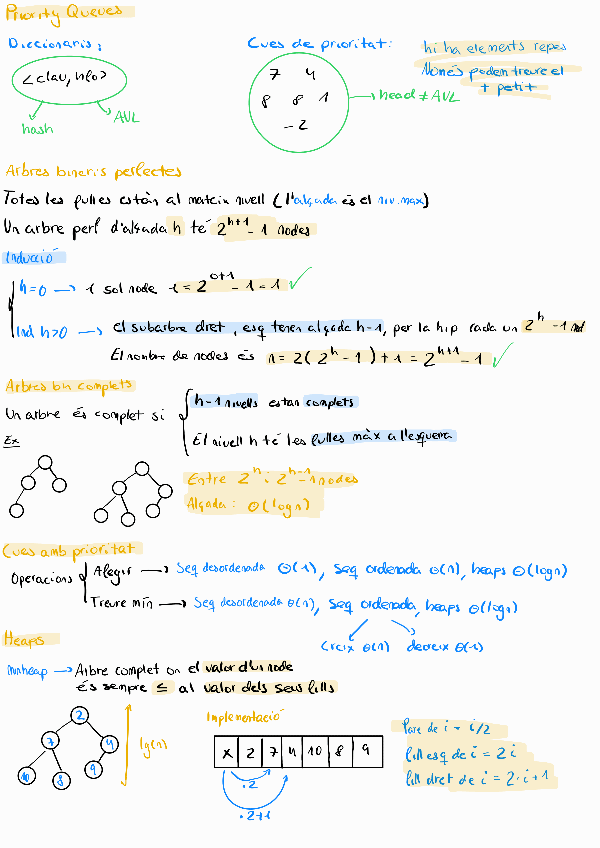 Priority Queues
Diccionaris:
<clau, info>
hash
AVL
Cues de prioritat:
7 4
8 8 1
-2
head ≠ AVL
hi ha elements repes
Només podem treure el
+ petit
Arbres binaris perfectes
Totes les fulles estàn al mateix nivell (l'alçada és el niv. max)
Un arbre perf d'alçada h té 2^{h+1} - 1 nodes
Inducció
h=0 → 1 sol node 1 = 2^{0+1} - 1 = 1 ✓
Ind h>0 → el subarbre dret, esq tenen alçada h-1, per la hip cada un 2^h - 1 nd
El nombre de nodes és n = 2(2^h - 1) + 1 = 2^{h+1} - 1 ✓
Arbres bin complets
Un arbre és complet si
h-1 nivells estan complets
El nivell h té les fulles màx a l'esquerra
Ex
Entre 2^h i 2^{h-1} nodes
Alçada: Θ(log n)
Cues amb prioritat
Operacions
Afegir → Seq desordenada Θ(1), seq ordenada Θ(n), heaps Θ(log n)
Treure mín → Seq desordenada Θ(n), seq ordenada, heaps Θ(log n)
Creix Θ(n) decreix Θ(1)
Heaps
minheap → Arbre complet on el valor d'un node
és sempre ≤ al valor dels seus fills
2
7 4
10 8 9
lg(n)
Implementació
x 2 7 4 10 8 9
·2
·2+1
Pare de i = i/2
fill esq de i = 2i
fill dret de i = 2·i+1